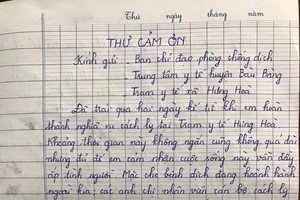 Thứ ngày tháng năm
THƯ CẢM ƠN
Kính gửi: - Ban chỉ đạo phòng chống dịch
- Trung tâm y tế huyện Bàu Bàng
- Trạm y tế xã Hưng Hoà
Đã trải qua hai ngày kể từ khi em hoàn
thành nghĩa vụ cách ly tại Trạm y tế Hưng Hoà
Khoảng thời gian này không ngắn cũng không quá dài
nhưng đủ để em cảm nhận cuộc sống này vẫn đầy
ắp tình người. Mặc cho bệnh dịch đang hoành hành
ngoài kia, các anh chị nhân viên cán bộ cách ly